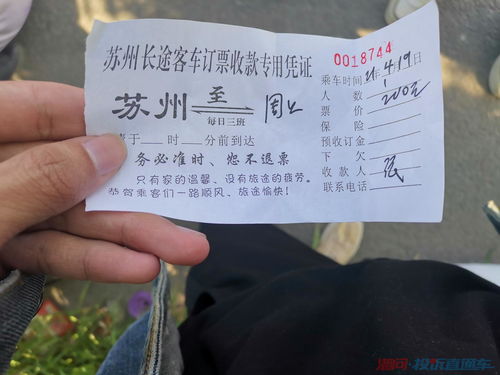 苏州长途客车订票收款专用凭证
0018744
乘车时间21年4月19日
苏州 至 周口
每日三班
人数 1
票价 200元
保险
于 时 分前到达
预收订金
务必准时、恕不退票
下欠
收款人
只有家的温馨、没有旅途的疲劳。
联系电话
恭贺乘客们一路顺风、旅途愉快!
投诉直通车